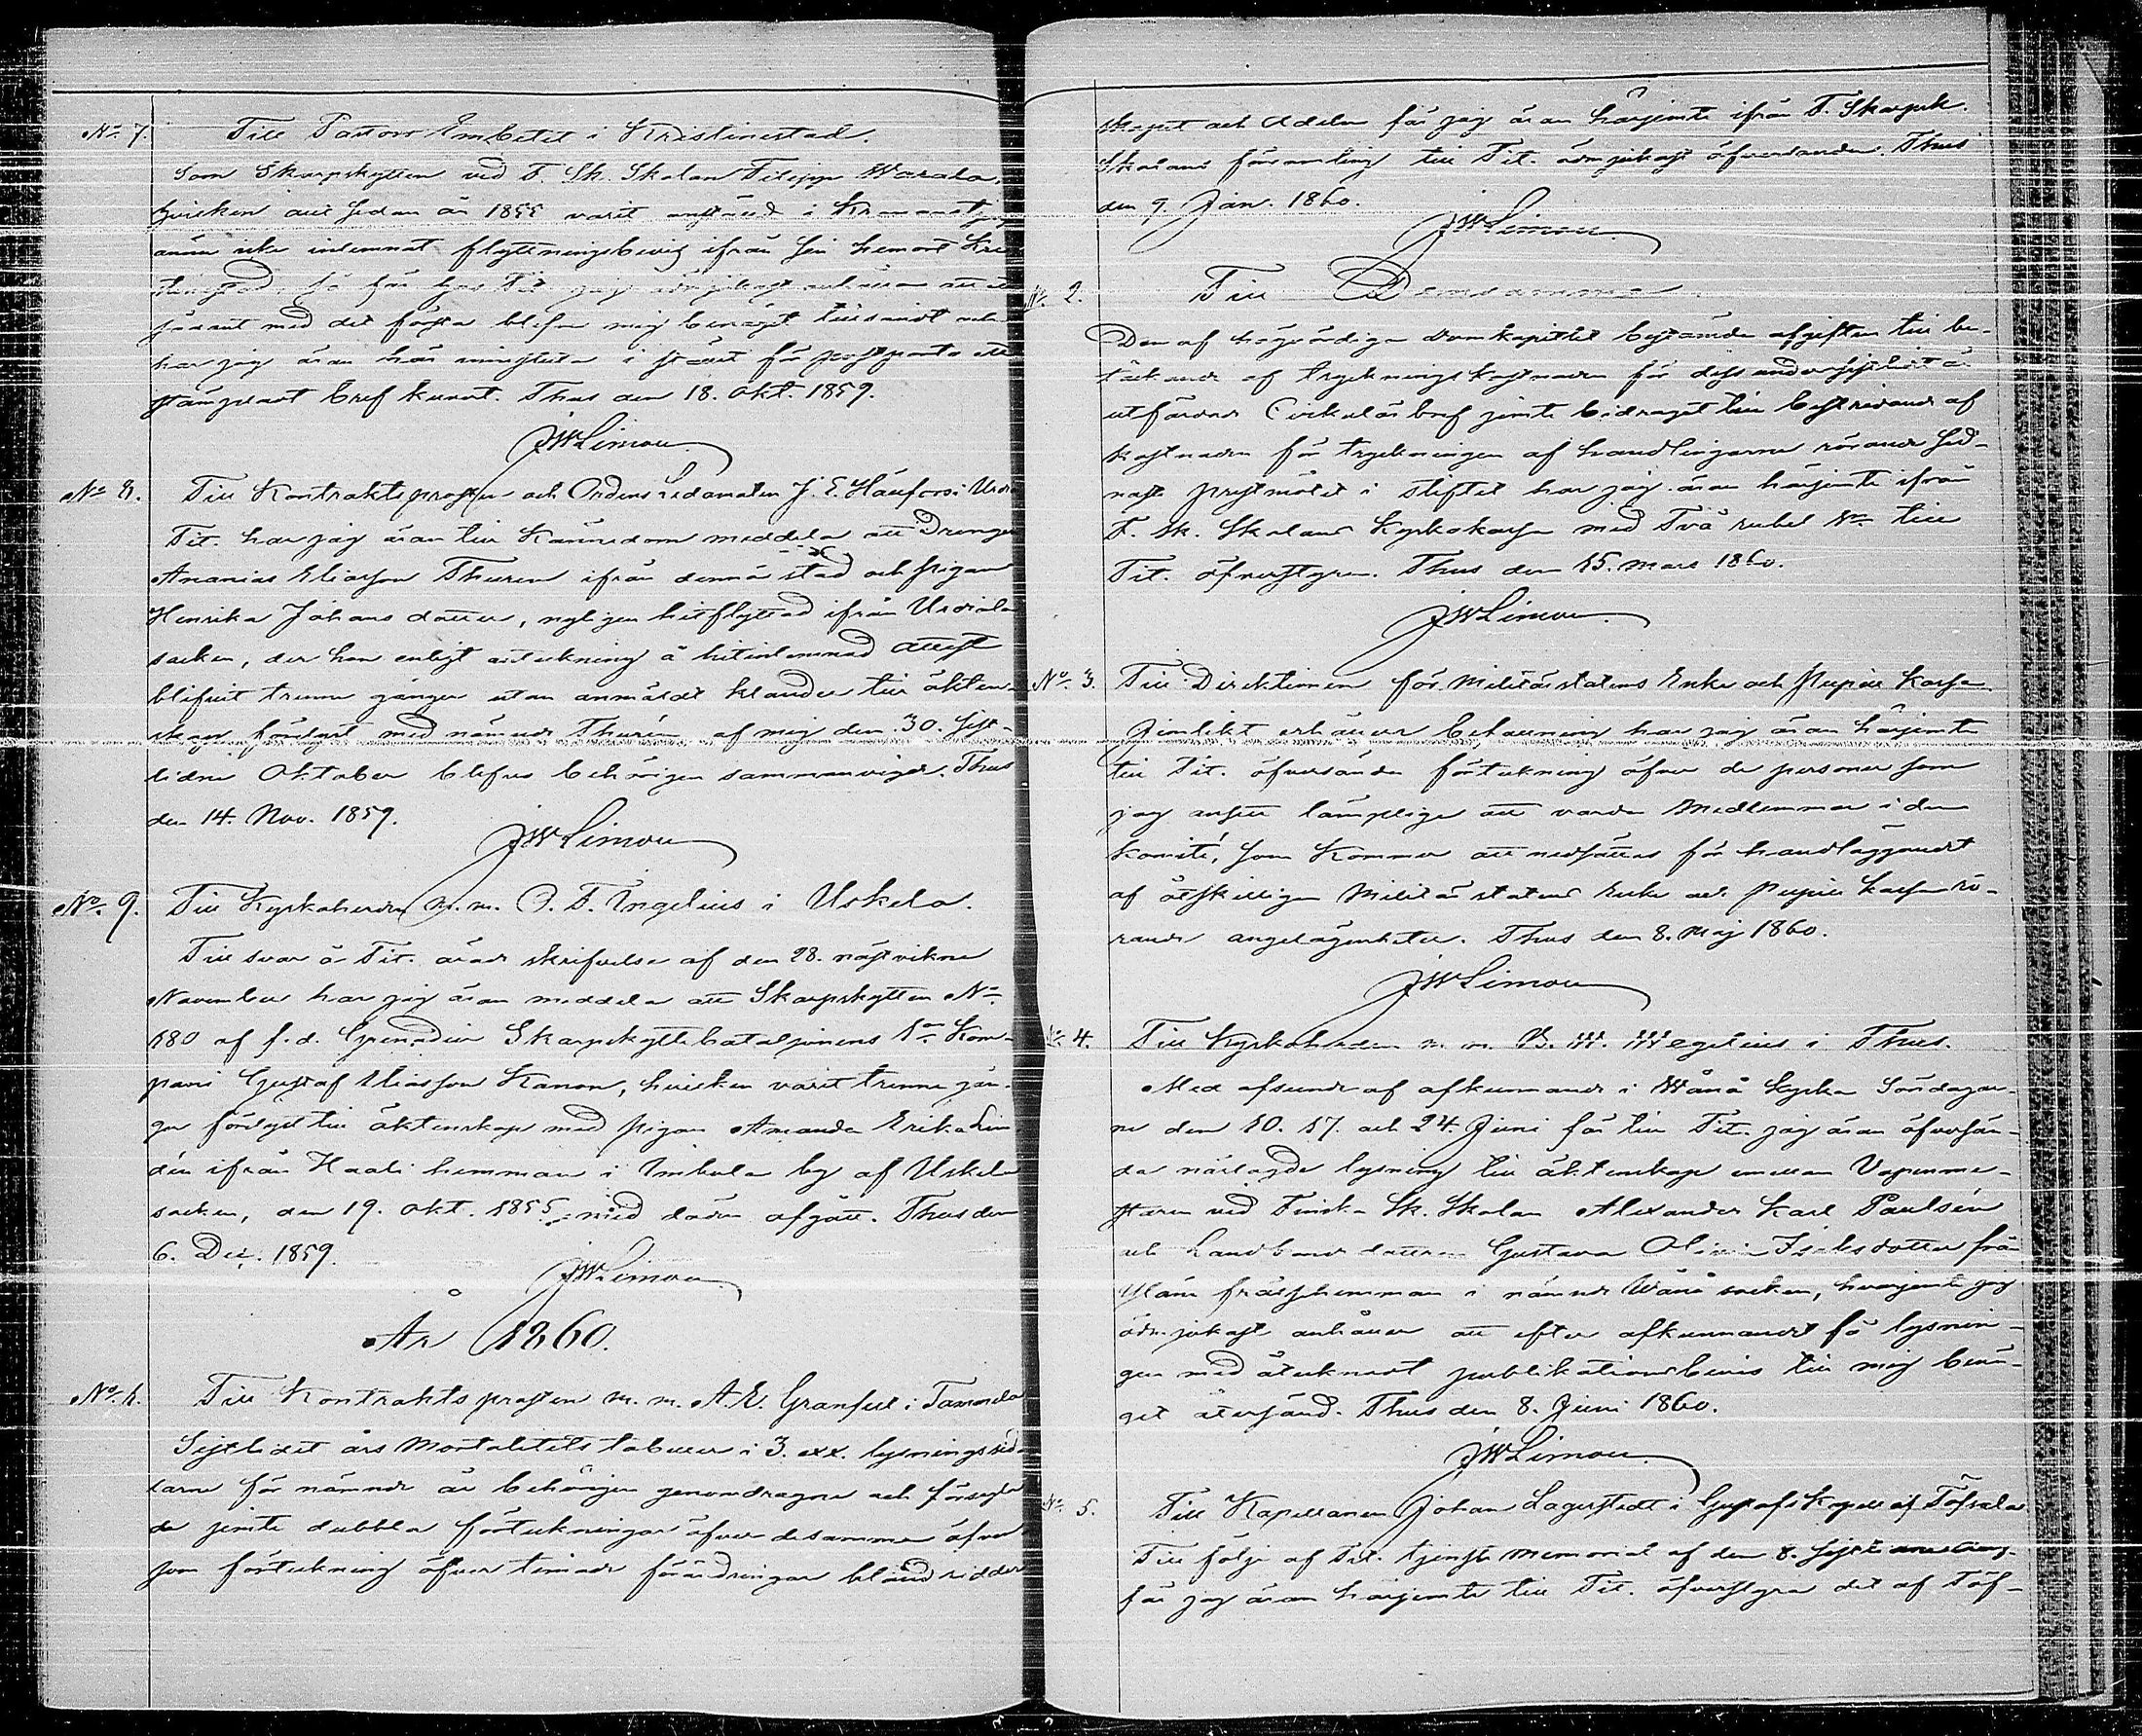 No. 7. Till Pastors Embetet i Kristinestad.
Som Skarpskytten vid F. Sk. Skolan Filipp Warala,
hvilken allt sedan år 1855 varit anstäld i
ännu icke inlemnat flyttningsbevis ifrån sin hemort Kris
tinestad, så får hos Tit. jag ödmjukast anhålla att
såsant med det första blefve mig benäget tillsändt och
har jag äran här innesluta i stället för postporto ett
stämpladt bref kuvert. Thus den 18. Okt. 1859.
JWLimon
No 8. Till Kontraktsprosten och Ordens Ledamoten J. E. Hånfors i Urdia
Tit. har jag äran till kännedom meddela att Drengen
Ananias Eliasson Thuren ifrån denna stad och pigan
Henrika Johansdotter, nyligen hitflyttad ifrån Urdiala
socken, der hon enligt anteckning å hitinlemnad attest
blifvit trenne gånger utan anmäldt klander till äkten-
skap förelyst med nämnde Thurén af mig den 30. sist-
lidne Oktober blefvo behörigen sammanvigde. Thus
den 14. Nov. 1859.
JWLimon
No. 9. Till Kyrkoherden m. m. O. F. Ingelius i Uskela.
Till svar å Tit. ärade skrifvelse af den 28. nästvikne
November har jag äran meddela att Skarpskytten No
180 af f. d. Grenadier Skarpskyttebataljonens 1a Kom-
pani Gustaf Eliasson Kanon, hvilken varit trenne gån-
ger förelyst till äktenskap med pigan Amanda Erika Lin
dén ifrån Haali hemman i Imbola by af Uskela
socken, den 19. Okt. 1855 med döden afgått. Thus den
6. Dec. 1859.
JWLimon
År 1860.
No. 1. Till Kontraktsprosten m. m. A. E. Granfelt i Tammela
Sistlidet års Mortalitets tabeller i 3. exx. lysningssed
larne för nämnde år behörigen genomdragne och försegla
de jemte dubbla förteckningar öfver desamma äfven
som förteckning öfver timade förändringar bland ridder
skapet och Adeln får jag äran härjemte ifrån F. Skarpsk.
Skolans församling till Tit. ödmjukast öfversända. Thus
den 9. Jan. 1860.
JWLimon
No. 2. Till Densamme
Den af högvördiga Domkapitlet bestämda afgiften till be-
täckande af tryckningskostnaden för dess under sistlidet år
utfärdade Cirkulärbref jemte bidraget till bestridande af
kostnaden för tryckningen af handlingarne rörande sed-
naste prestmötet i stiftet har jag äran härjemte ifrån
F. Sk. Skolans Kyrkokassa med Två rubel Sr till
Tit. öfverstyra. Thus den 15. Mars 1860.
JWLimon
No. 3. Till Direktionen för Militärstatens Enke och Pupill Kassa.
Jemlikt erhållen befallning har jag äran härjemte
till Tit. öfversända förteckning öfver de personer som
jag ansett lämplige att varda Medlemmar i den
komité, som kommer att nedsättas för handläggandet
af åtskilliga Militär statens Enke och Pupill kassa rö-
rande angelägenheter. Thus den 8. Maj 1860.
JWLimon
No 4. Till Kyrkoherden m. m. B. W. Wegelius i Thus.
Med afseende af afkunnande i Wånå kyrka Söndagar-
ne den 10. 17. och 24. Juni får till Tit. jag äran öfversän-
da närlagde lysning till äktenskap emellan Vapenme-
staren vid Finska Sk. Skolan Alexander Karl Paulsén
och Landbonde dottren Gustava Olivia Isaksdotter från
frälsehemman i nämnde Wånå socken, hvarjemte jag
ödmjukast anhåller att efter afkunnandet få lysnin-
gen med åtecknadt publikationsbevis till mig benä-
get återsänd. Thus den 8. Juni 1860.
JWLimon
No. 5. Till Kapellanen Johan Lagerstedt i Gustafs Kapell af Töfsala
Till följe af Tit. tjenste Memorial af den 8. sistl.
får jag äran härjemte till Tit. öfverstyra det af Töf-